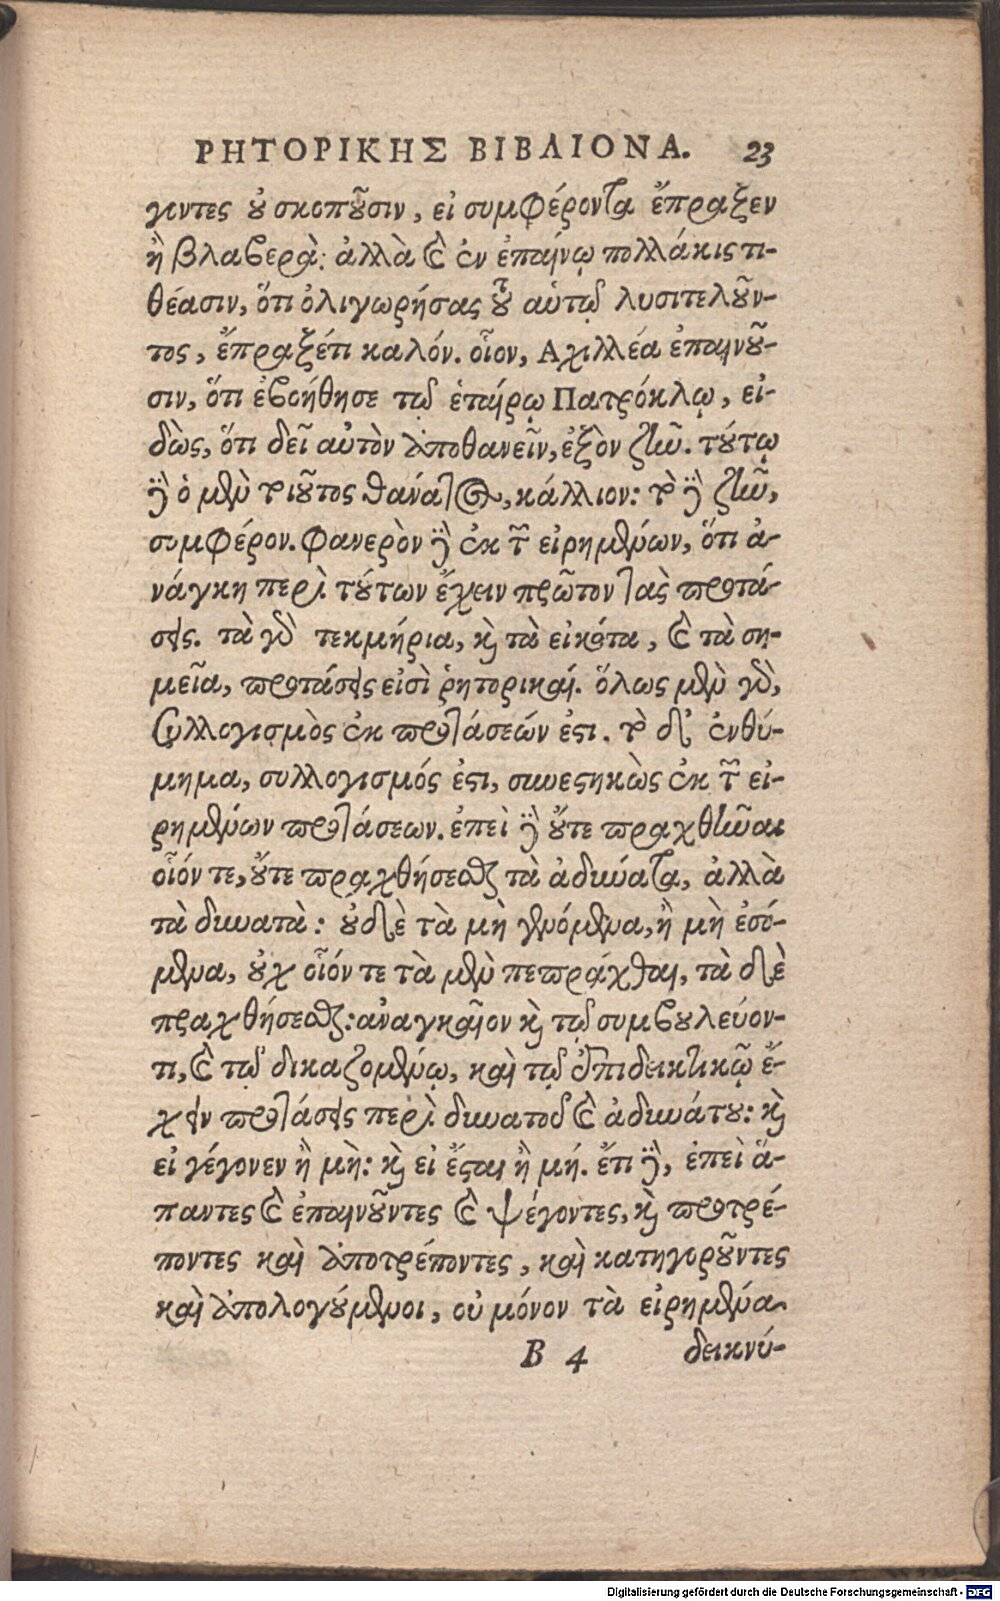 ΡΗΤΟΡΙΚΗΣ ΒΙΒΛΙΟΝ Α. 23
γοντες οὐ σκοποῦσιν, εἰ συμφέροντα ἔπραξεν
ἢ βλαβερὰ: ἀλλὰ καὶ ἐν ἐπαίνῳ πολλάκις τι-
θέασιν, ὅτι ὀλιγωρήσας τοῦ αὑτῷ λυσιτελοῦν-
τος, ἔπραξέ τι καλόν. οἷον, Αχιλλέα ἐπαινοῦ-
σιν, ὅτι ἐβοήθησε τῷ ἑταίρῳ Πατρόκλῳ, εἰ-
δὼς, ὅτι δεῖ αὐτὸν ἀποθανεῖν, ἐξὸν ζῆν. τούτῳ
δὲ ὁ μὲν τοιοῦτος θάνατος, κάλλιον: τὸ δὲ ζῆν,
συμφέρον. Φανερὸν δὲ ἐκ τῶν εἰρημένων, ὅτι ἀ-
νάγκη περὶ τούτων ἔχειν πρῶτον τὰς προτά-
σεις. τὰ γὰρ τεκμήρια, καὶ τὰ εἰκότα, καὶ τὰ ση-
μεῖα, προτάσεις εἰσὶ ῥητορικαί. ὅλως μὲν γὰρ,
συλλογισμὸς ἐκ προτάσεών ἐστι. τὸ δ' ἐνθύ-
μημα, συλλογισμός ἐστι, συνεστηκὼς ἐκ τῶν εἰ-
ρημένων προτάσεων. ἐπεὶ δὲ οὔτε πραχθῆναι
οἷόν τε, οὔτε πραχθήσεσθαι τὰ ἀδύνατα, ἀλλὰ
τὰ δυνατὰ: οὐδὲ τὰ μὴ γενόμενα, ἢ μὴ ἐσό-
μενα, οὐχ οἷόν τε τὰ μὲν πεπράχθαι, τὰ δὲ
πραχθήσεσθαι: ἀναγκαῖον καὶ τῷ συμβουλεύον-
τι, καὶ τῷ δικαζομένῳ, καὶ τῷ ἐπιδεικτικῷ ἔ-
χειν προτάσεις περὶ δυνατοῦ καὶ ἀδυνάτου: καὶ
εἰ γέγονεν ἢ μὴ: καὶ εἰ ἔσται ἢ μή. ἔτι δὲ, ἐπεὶ ἅ-
παντες καὶ ἐπαινοῦντες καὶ ψέγοντες, καὶ προτρέ-
ποντες καὶ ἀποτρέποντες, καὶ κατηγοροῦντες
καὶ ἀπολογούμενοι, οὐ μόνον τὰ εἰρημένα
B 4 δεικνύ-
Digitalisierung gefördert durch die Deutsche Forschungsgemeinschaft - DFG